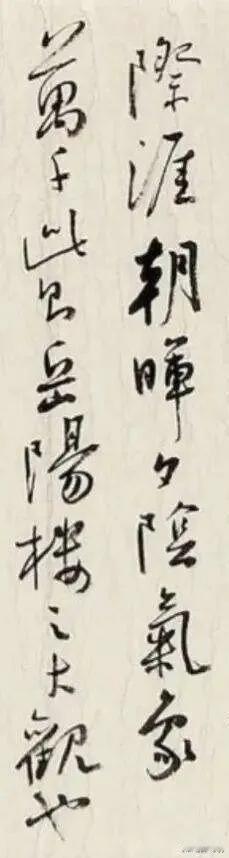 際涯朝暉夕陰氣象
萬千此則岳陽樓之大觀也